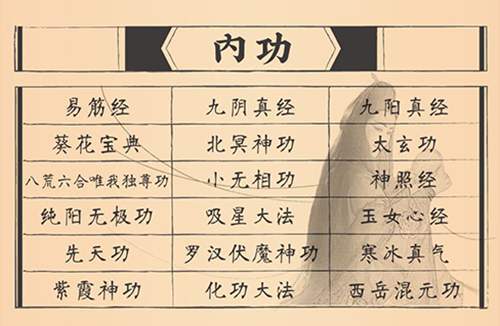 内功
易筋经 九阴真经 九阳真经
葵花宝典 北冥神功 太玄功
八荒六合唯我独尊功 小无相功 神照经
纯阳无极功 吸星大法 玉女心经
先天功 罗汉伏魔神功 寒冰真气
紫霞神功 化功大法 西岳混元功